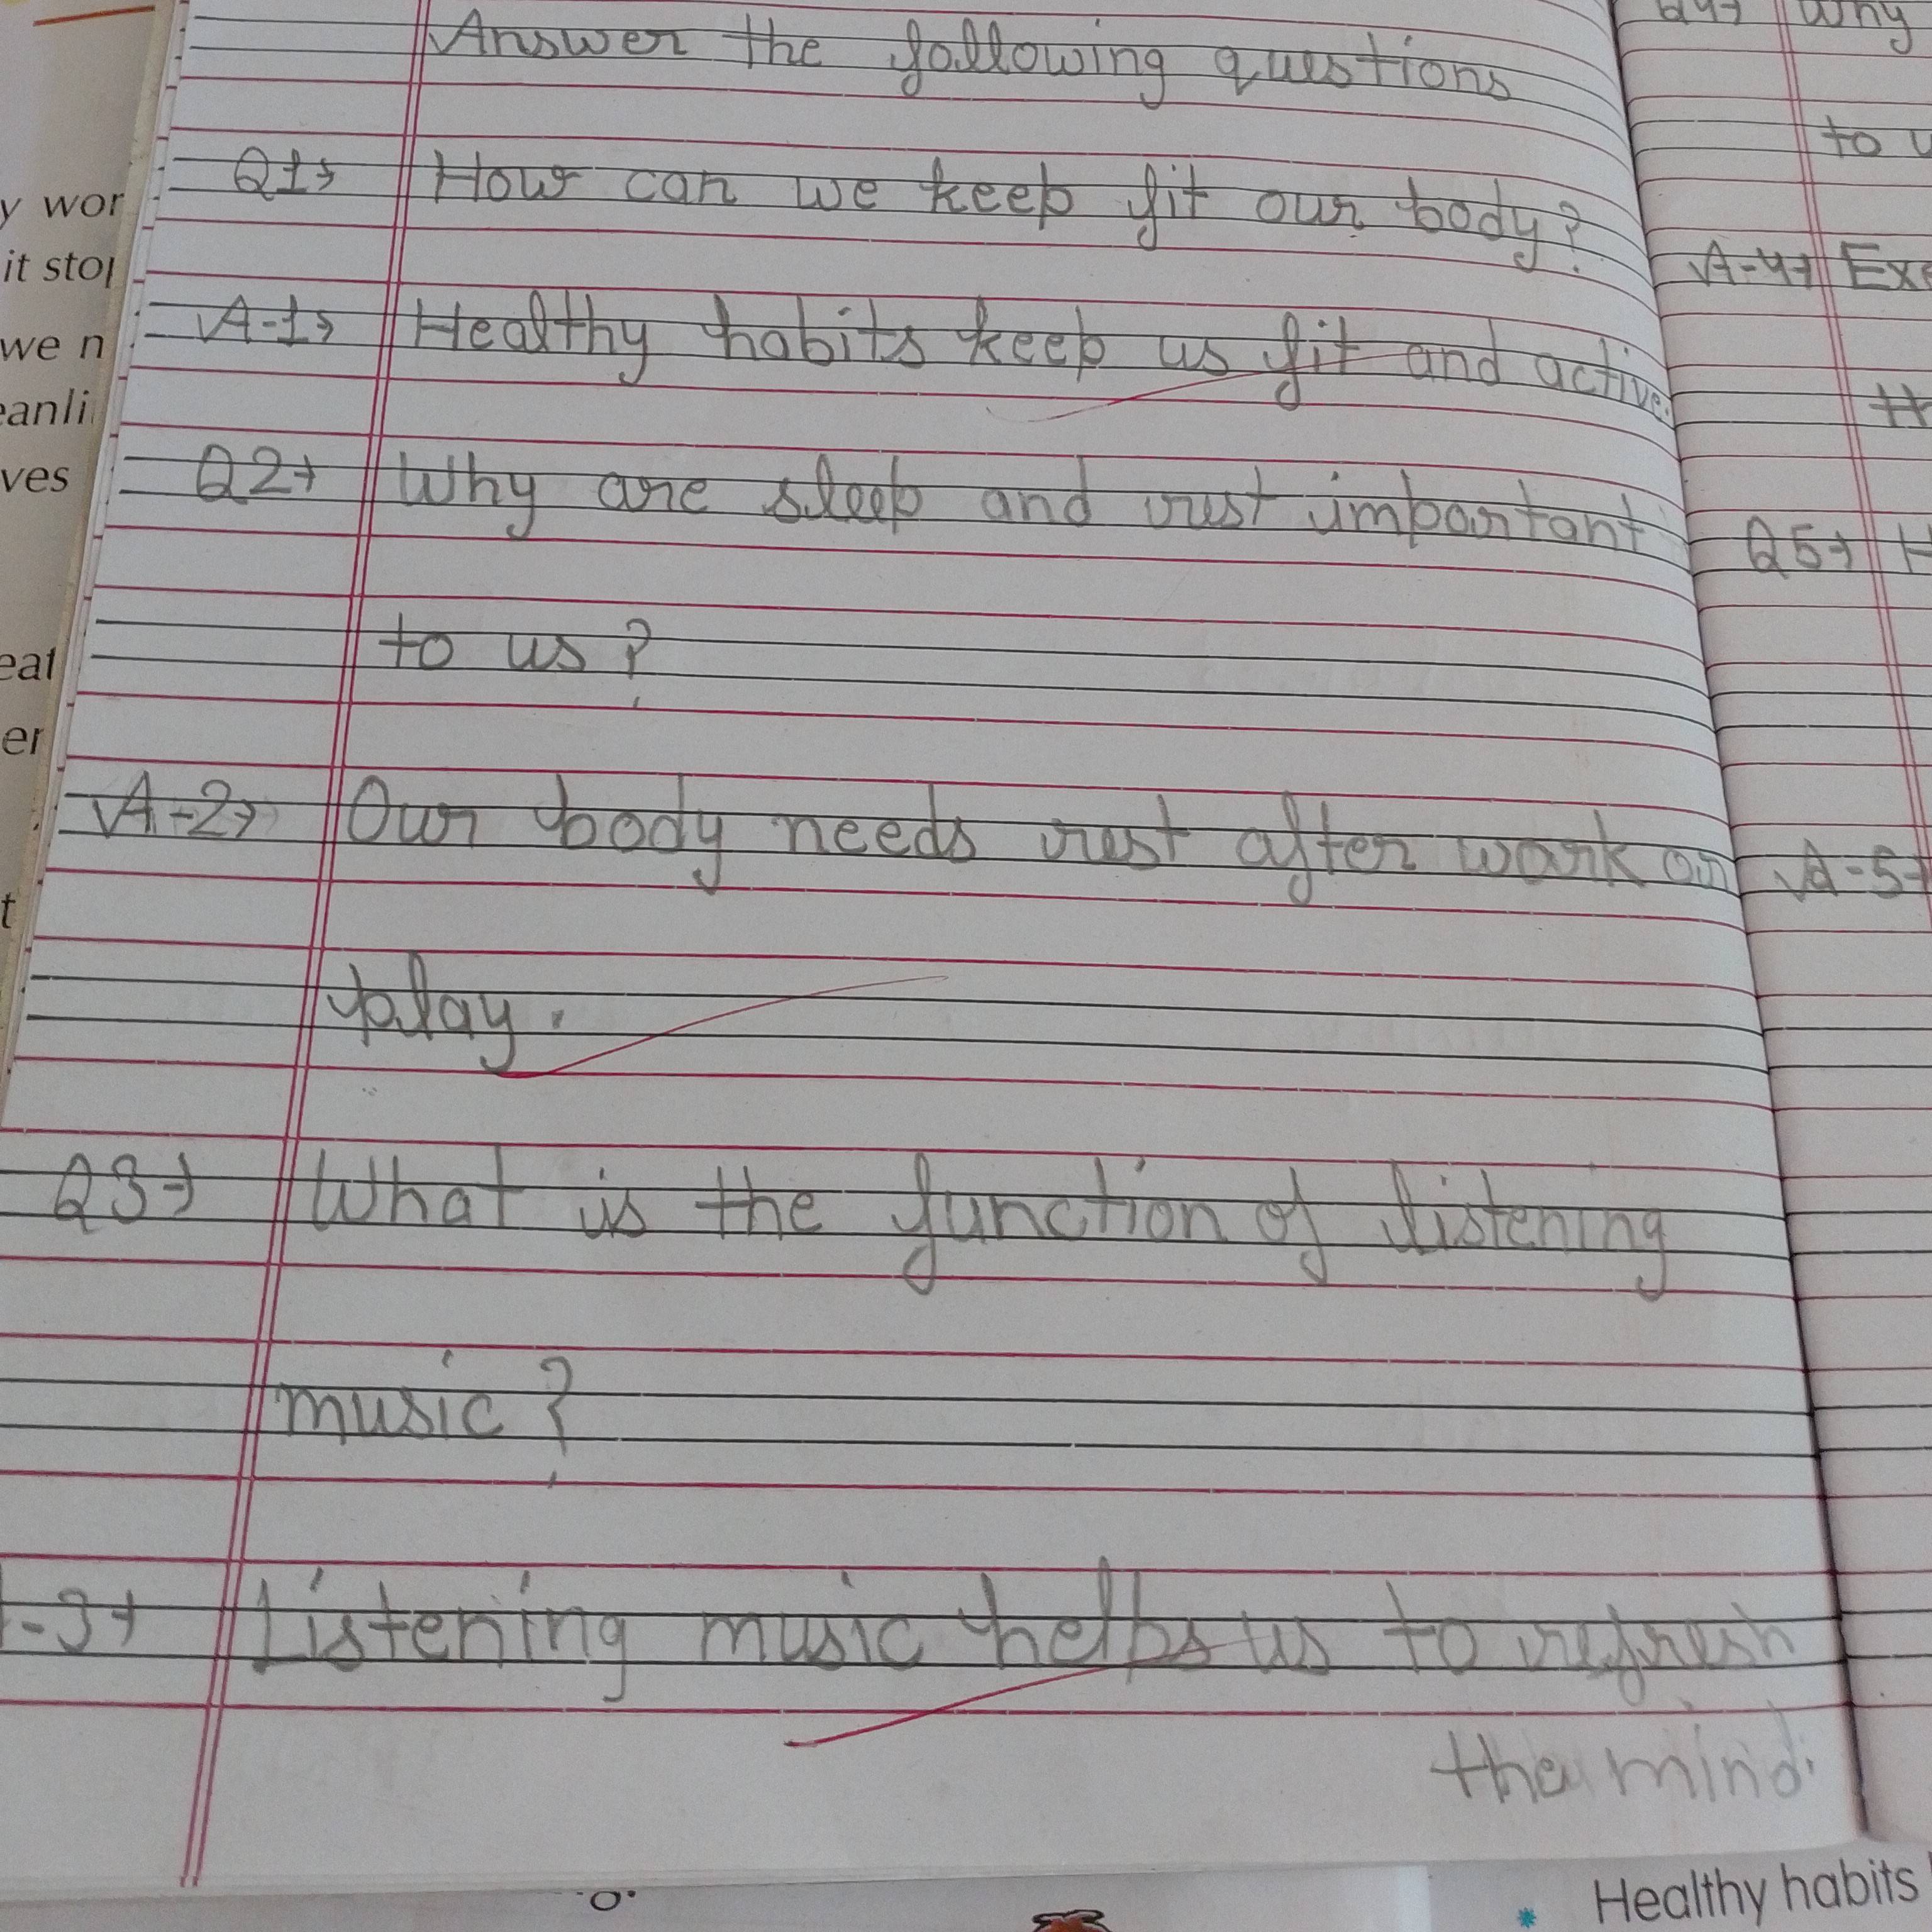 Answer the following questions
Q1→ How can we keep fit our body?
A-1→ Healthy habits keep us fit and active.
Q2→ Why are sleep and rest important
to us?
A-2→ Our body needs rest after work or
play.
Q3→ What is the function of listening
music?
-3→ Listening music helps us to refresh
the mind.
Why
to
A-4→
Q5→
A-5→
we n
ves
er
Healthy habits